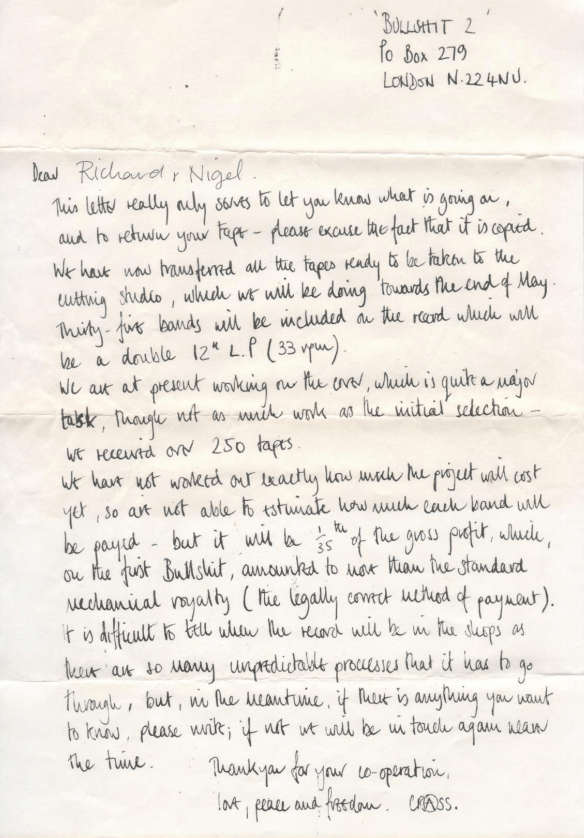 'BULLSHIT 2'
PO BOX 279
LONDON N.22 4NU.
Dear Richard + Nigel.
This letter really only serves to let you know what is going on,
and to return your tape – please excuse the fact that it is copied.
We have now transferred all the tapes ready to be taken to the
cutting studio, which we will be doing towards the end of May.
Thirty-five bands will be included on the record which will
be a double 12" L.P (33 rpm).
We are at present working on the cover, which is quite a major
task, though not as much work as the initial selection –
we received over 250 tapes.
We have not worked out exactly how much the project will cost
yet, so are not able to estimate how much each band will
be payed – but it will be 1/35th of the gross profit, which,
on the first Bullshit, amounted to more than the standard
mechanical royalty (the legally correct method of payment).
It is difficult to tell when the record will be in the shops as
there are so many unpredictable processes that it has to go
through, but, in the meantime, if there is anything you want
to know, please write; if not we will be in touch again near
the time.
Thankyou for your co-operation,
love, peace and freedom. CRⒶSS.